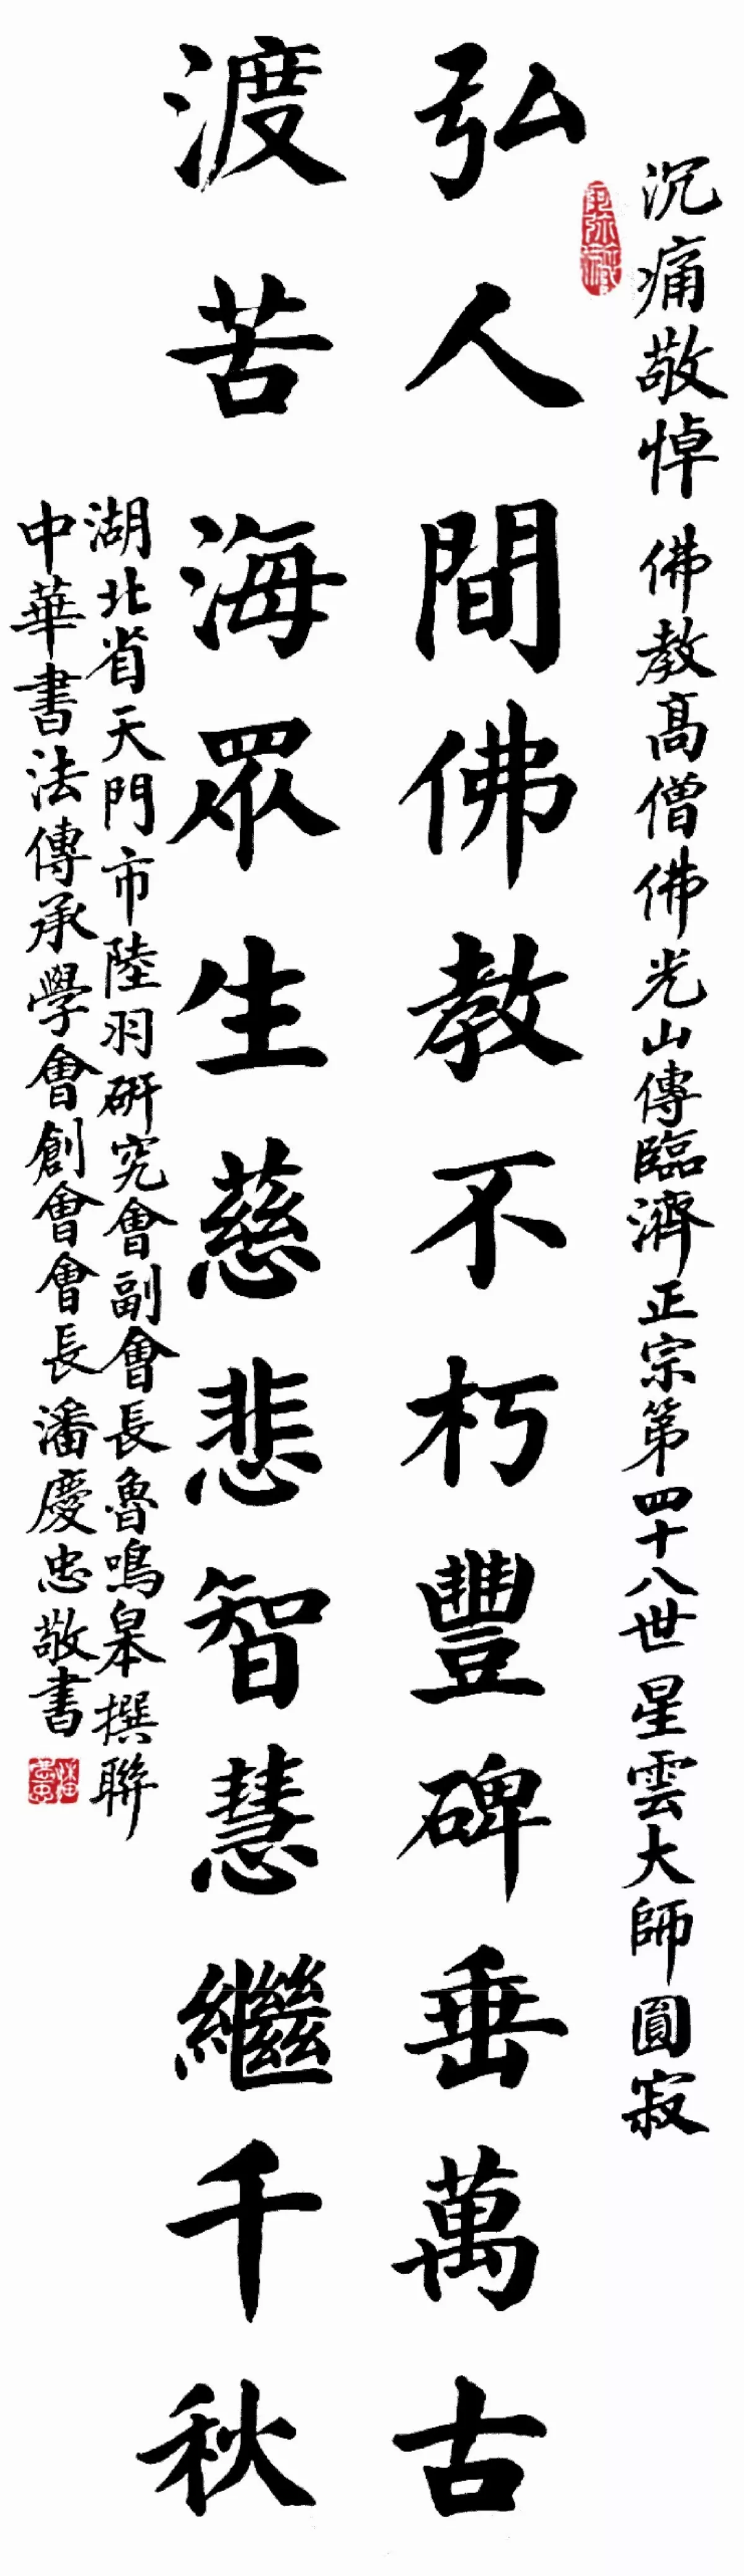 沉痛敬悼佛教高僧佛光山傳臨濟正宗第四十八世星雲大師圓寂
弘人間佛教不朽豐碑垂萬古
渡苦海眾生慈悲智慧繼千秋
湖北省天門市陸羽研究會副會長魯鳴皋撰聯
中華書法傳承學會創會會長潘慶忠敬書